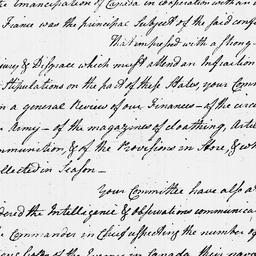 the Emancipation of Canada in Cooperation with an
France was the principal Subject of the said conf
That impressed with a strong
jury & Disgrace which must attend an Infraction
Stipulations on the part of these States, your Comm
in a general Review of our Finances – of the circu
Army – of the magazines of cloathing, Artil
mmunition, & of the Provisions in Store, & wh
ollected in Season –
Your Committee have also a
dered the Intelligence & Observations communica
he Commander in Chief respecting the number of
of the Enemy in Canada their nava